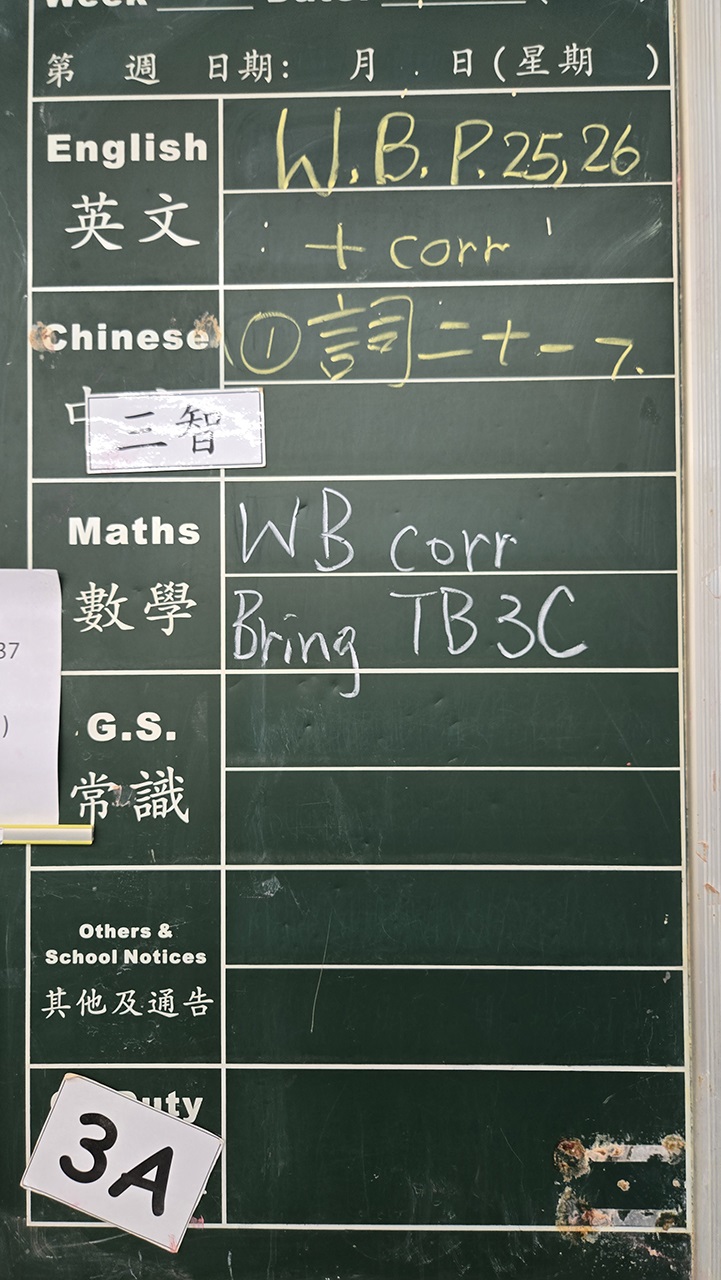 Week Date: (
第 週 日期: 月 日(星期 )
English
英文
W.B. P.25,26
+ corr
Chinese
① 詞二十一
三智
Maths
數學
WB corr
Bring TB 3C
37
)
G.S.
常識
Others &
School Notices
其他及通告
3A